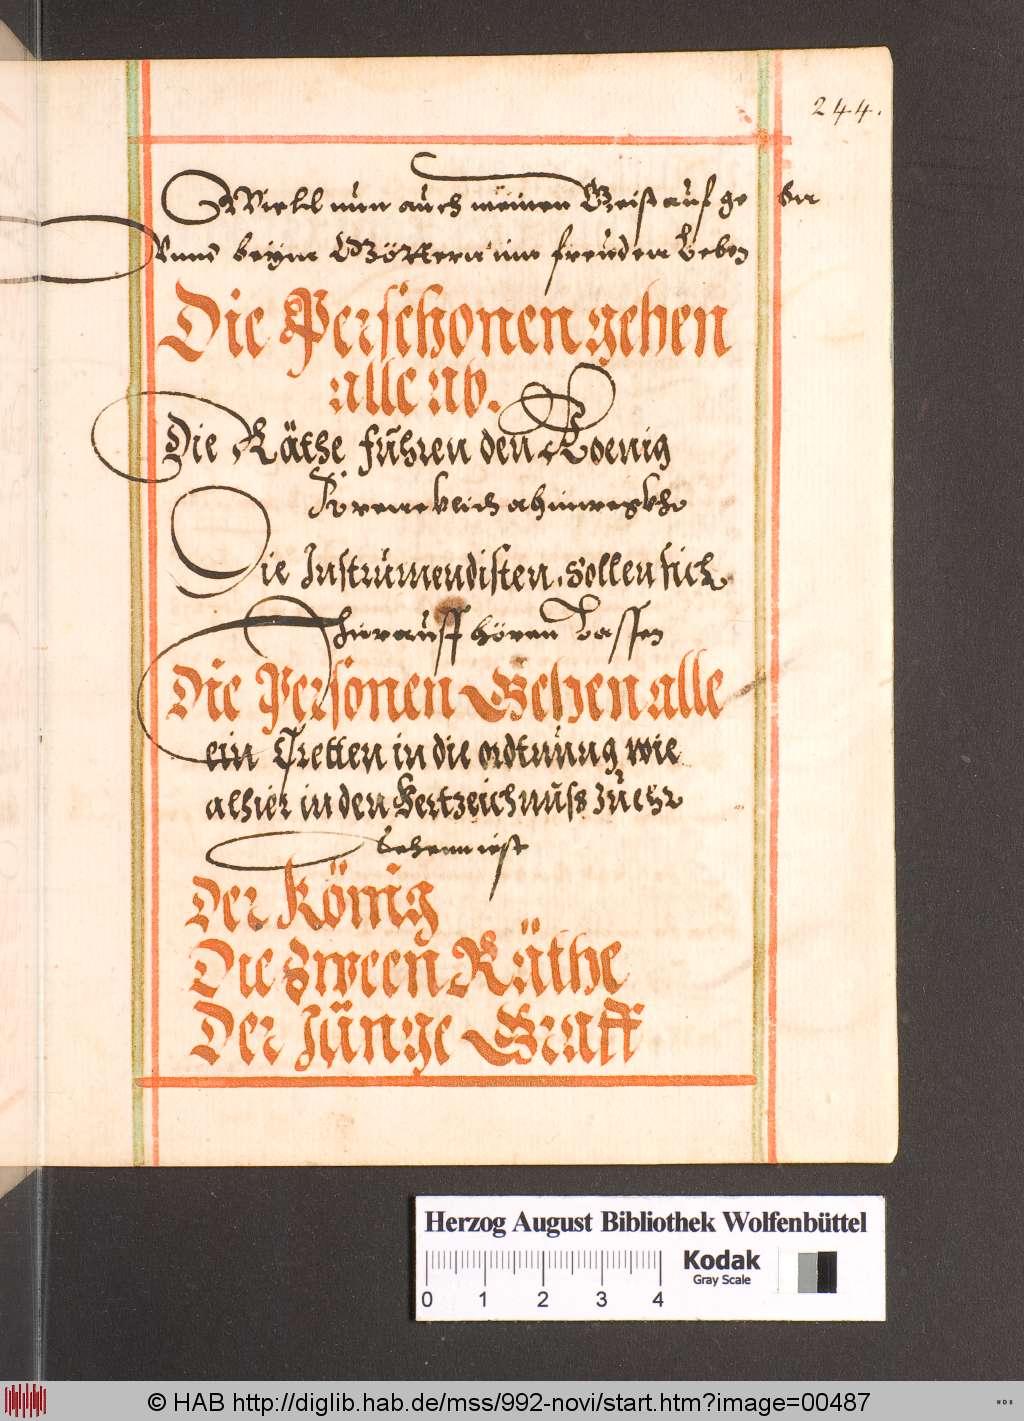 244.
Will nun auch meinen Geist auf ge ben
Unnd beÿm Göttern im freuden Leben
Die Perschonen gehen
alle ab.
Die Räthe führen den Koenig
Die Instrumendisten sollen sich
hören Lassen
Die Personen Gehen alle
ein Tretten in die ordtnung wie
alhier in den
Der König
Die Zween Räthe
Der Jünge Graff
Herzog August Bibliothek Wolfenbüttel
Kodak
Gray Scale
0 1 2 3 4
© HAB http://diglib.hab.de/mss/992-novi/start.htm?image=00487